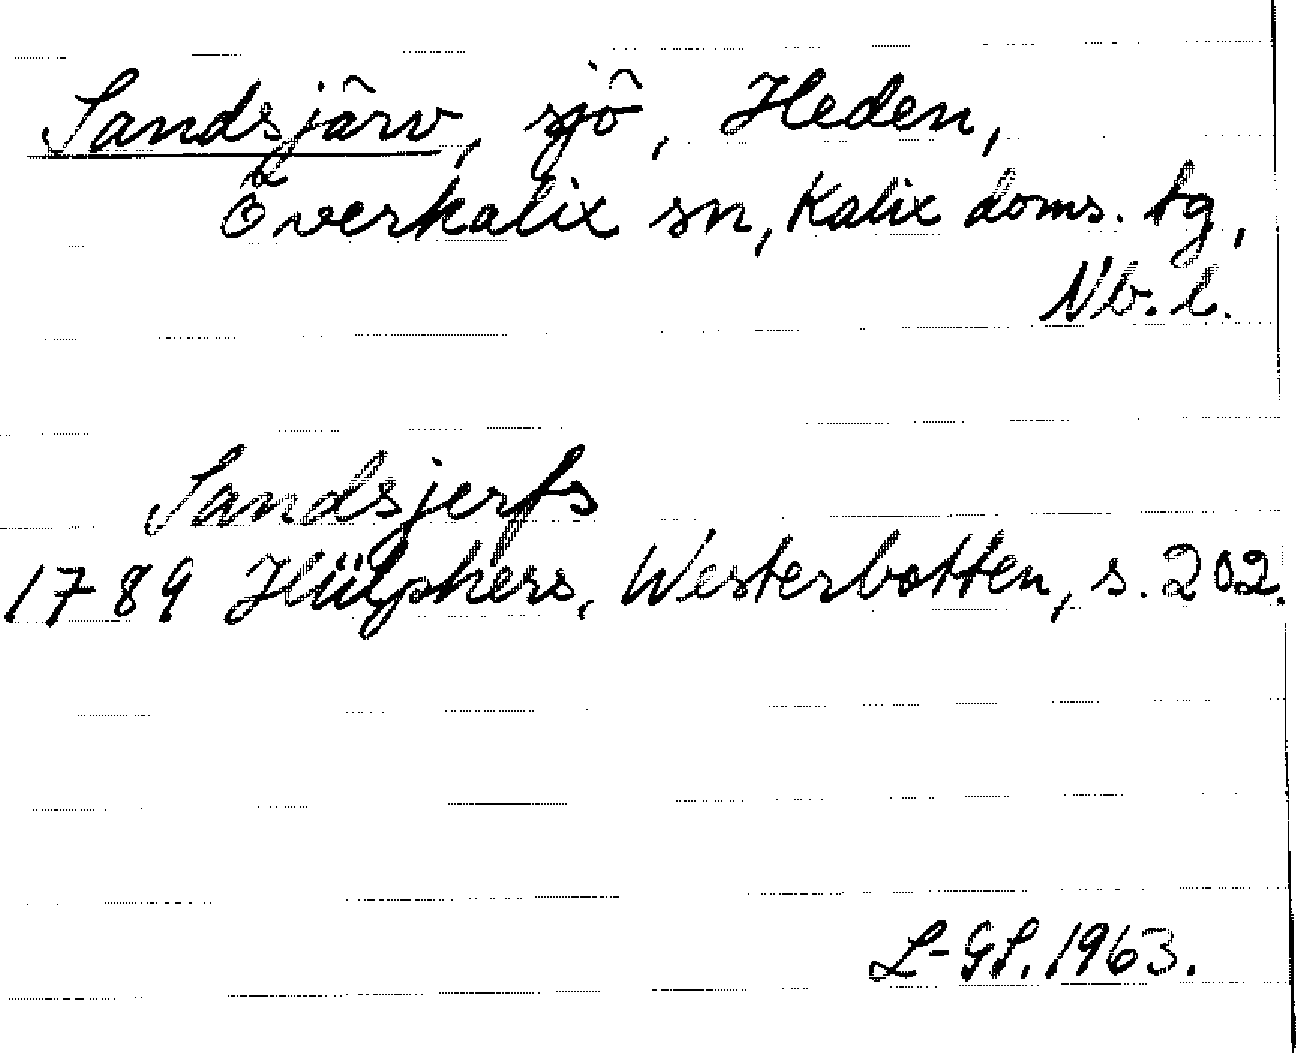 Sandsjärv, sjö, Heden,
Överkalix sn, Kalix doms. tg,
Nb. l.
Sandsjerfs
1789 Hülphers, Westerbotten, s. 202.
L-GS. 1963.